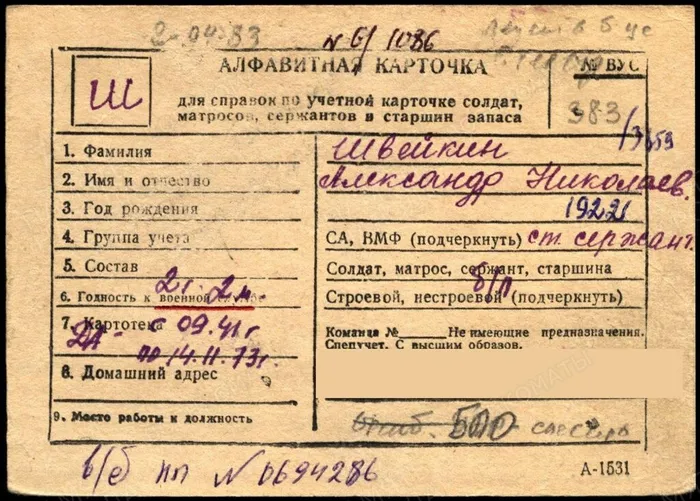 2-04.83
N 6/1086
АЛФАВИТНАЯ КАРТОЧКА
№ ВУС
Ш
для справок по учетной карточке солдат,
матросов, сержантов и старшин запаса
383
1. Фамилия
Швейкин
2. Имя и отчество
Александр Николаев.
3. Год рождения
1922
4. Группа учета
СА, ВМФ (подчеркнуть) ст. сержант.
5. Состав
Солдат, матрос, сержант, старшина
6. Годность к военной службе
2г. 2м.
Строевой, нестроевой (подчеркнуть)
б/п
7. Картотека
с 09.41г
по 14.11.73г.
Команда № Не имеющие предназначения.
Спецучет. С высшим образов.
8. Домашний адрес
9. Место работы и должность
слесарь
в/б НП N 0694286
А-1531